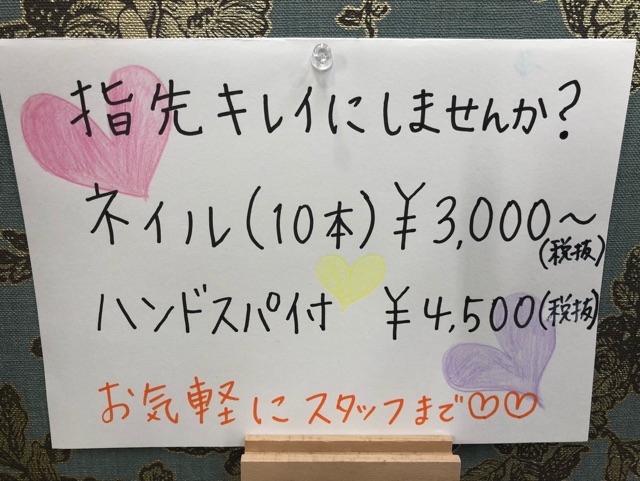 指先キレイにしませんか?
ネイル(10本)¥3,000〜
(税抜)
ハンドスパ付 ¥4,500(税抜)
お気軽にスタッフまで♡♡